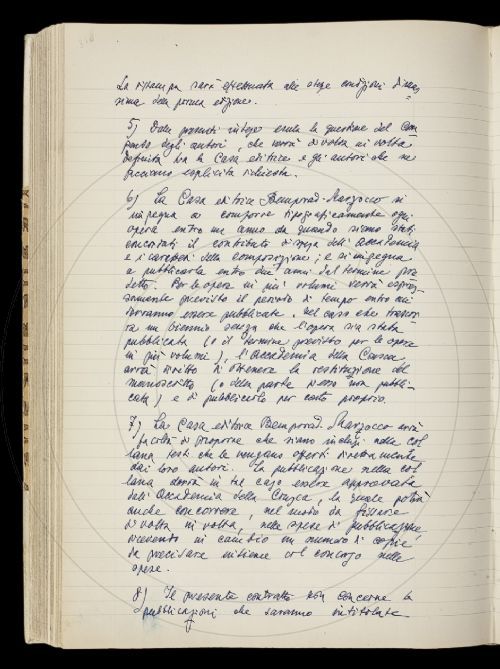 La ristampa sarà effettuata alle stesse condizioni di mas=
sima della prima edizione.
5) Dalle presenti intese esula la questione del com
penso degli autori, che verrà di volta in volta
definita tra la Casa editrice e gli autori che ne
facciano esplicita richiesta.
6) La Casa editrice Bemporad-Marzocco si
impegna a comporre tipograficamente ogni
opera entro un anno da quando siano stati
concordati il contributo di spesa dell'Accademia
e i caratteri della composizione; e si impegna
a pubblicarla entro due anni dal termine pre
detto. Per le opere in più volumi verrà espres=
samente previsto il periodo di tempo entro cui
dovranno essere pubblicate. Nel caso che trascor
ra un biennio senza che l'opera sia stata
pubblicata (o il termine previsto per le opere
in più volumi), l'Accademia della Crusca
avrà diritto di ottenere la restituzione del
manoscritto (o della parte di esso non pubbli=
cata) e di pubblicarlo per conto proprio.
7) La Casa editrice Bemporad-Marzocco avrà
facoltà di proporre che siano inclusi nella col
lana testi che le vengano offerti direttamente
dai loro autori. La pubblicazione nella col
lana dovrà in tal caso essere approvata
dall'Accademia della Crusca, la quale potrà
anche concorrere, nel modo da fissare
di volta in volta, nelle spese di pubblicazione,
ricevendo in cambio un numero di copie
da precisare insieme col concorso nelle
spese.
8) Il presente contratto non concerne le
pubblicazioni che saranno intitolate